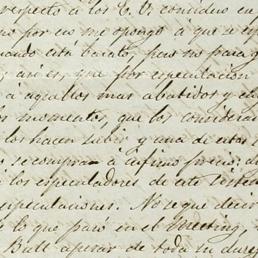 respecto à los C. V. considero
no por eso me opongo à que
cuando está barato, pero no para
, asi es, que por especulacion
à aquellos mas abatidos y
los momentos, que los consideran
los hacen subir, y una de estas
se compran à infimo precio, de
los especuladores de este
especulaciones. No se que decir
lo que paró en el meeting,
Bull apesar de toda su